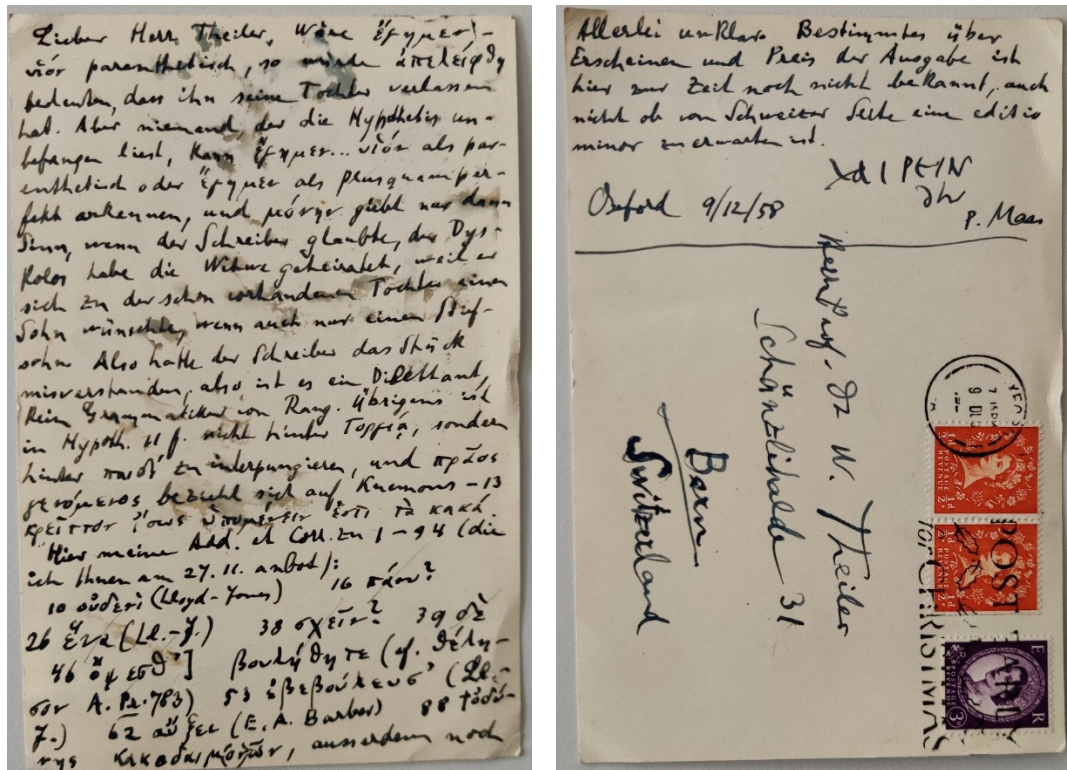 Lieber Herr Theiler, Wäre ἔγημεν –
υἱόν parenthetisch, so würde ἀπελείφθη
bedeuten, dass ihn seine Tochter verlassen
hat. Aber niemand, der die Hypothesis un-
befangen liest, kann ἔγημεν... υἱόν als par-
enthetisch oder ἔγημεν als Plusquamper-
fekt erkennen, und μόνην giebt nur dann
Sinn, wenn der Schreiber glaubte, der Dys-
kolos habe die Witwe geheiratet, weil er
sich zu der schon vorhandenen Tochter einen
Sohn wünschte, wenn auch nur einen Stief-
sohn Also hatte der Schreiber das Stück
misverstanden, also ist es ein Dilettant,
kein Grammatiker von Rang. Übrigens ist
in Hypoth. 11 f. nicht hinter Γοργίᾳ, sondern
hinter παιδί zu interpungieren, und πρᾶος
γενόμενος bezieht sich auf Knemons – 13
κρεῖττον ἴσως ὑπομένειν ἐστὶ τὰ κακά.
Hier meine Add. et Corr. zu 1 – 94 (die
ich Ihnen am 27.11. anbot):
10 οὐδενὶ (Lloyd-Jones) 16 πάνυ?
26 ἕνα (Ll.-J.) 38 σχεῖν? 39 δὲ
46 ὄψεσθ'] βουλήθητε (cf. θέλη-
σον A. Pr. 783) 53 (Ll.-
J.) 62 αὔξει (E. A. Barber) 88
κακοδαιμονῶν, ausserdem noch
Allerlei unklar. Bestimmtes über
Erscheinen und Preis der Ausgabe ist
hier zur Zeit noch nicht bekannt, auch
nicht ob von Schweizer Seite eine editio
minor zu erwarten ist.
ΧΑΙΡΕΙΝ
Ihr
Oxford 9/12/58 P. Maas
Herrn Prof. Dr W. Theiler
Schänzlihalde 31
Bern
Switzerland
9 DE
POST EARLY
FOR CHRISTMAS
POSTAGE REVENUE
½d
POSTAGE REVENUE
½d
E R
3D